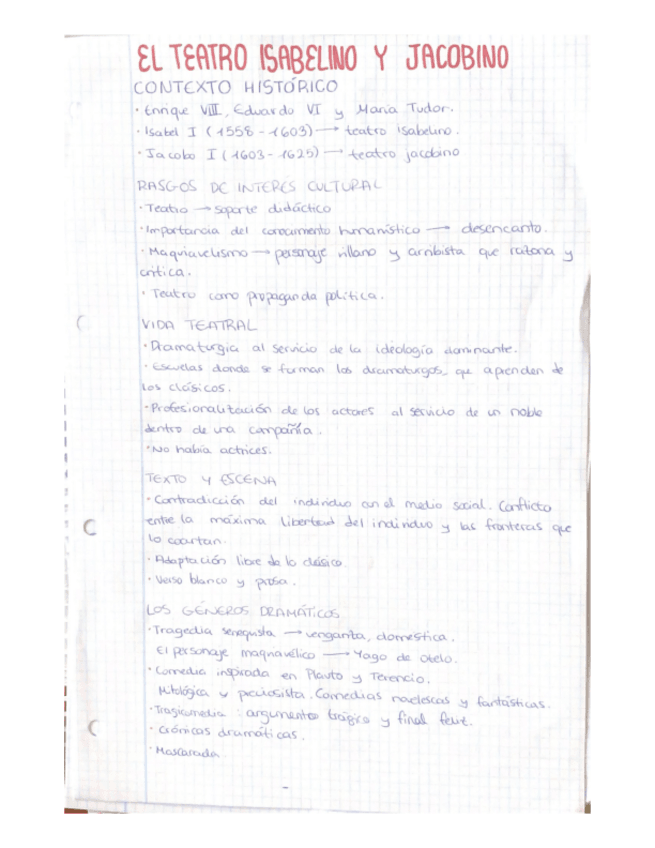 EL TEATRO ISABELINO Y JACOBINO
CONTEXTO HISTÓRICO
· Enrique VIII, Eduardo VI y Maria Tudor.
· Isabel I (1558-1603) → teatro isabelino.
· Jacobo I (1603-1625) → teatro jacobino
RASGOS DE INTERÉS CULTURAL
· Teatro → soporte didáctico
· Importancia del conocimiento humanístico → desencanto.
· Maquiavelismo → personaje villano y arribista que razona y
critica.
· Teatro como propaganda política.
VIDA TEATRAL
· Dramaturgia al servicio de la ideología dominante.
· Escuelas donde se forman los dramaturgos, que aprenden de
los clásicos.
· Profesionalización de los actores al servicio de un noble
dentro de una compañía.
· No había actrices.
TEXTO Y ESCENA
· Contradicción del individuo con el medio social. Conflicto
entre la máxima libertad del individuo y las fronteras que
lo coartan.
· Adaptación libre de lo clásico.
· Verso blanco y prosa.
LOS GÉNEROS DRAMÁTICOS
· Tragedia senequista → venganza, doméstica.
El personaje maquiavélico → Yago de Otelo.
· Comedia inspirada en Plauto y Terencio.
Mitológica y preciosista. Comedias novelescas y fantásticas.
· Tragicomedia: argumento trágico y final feliz.
· Crónicas dramáticas.
· Mascarada